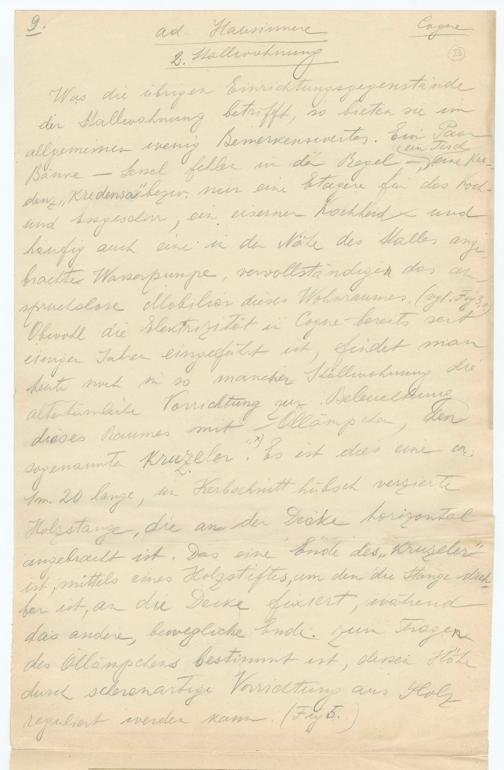 9. ad. Hausinnere Cogne
2. Stallwohnung 28
Was die übrigen Einrichtungsgegenstände
der Stallwohnung betrifft, so bieten sie im
allgemeinen wenig Bemerkenswertes. Ein Paar
Bänke – Sessel fehlen in der Regel – ein Tisch, eine Kre-
denz „Kredensa" bezw. nur eine Etagere für das Koch-
und Essgeschirr, ein eiserner Kochherd und
häufig auch eine in der Nähe des Stalles ange
brachte Wasserpumpe, vervollständigen das an
spruchslose Mobiliar dieses Wohnraumes. (vgl. Fig 3.)
Obwohl die Elektrizität in Cogne bereits seit
einiger Jahren eingeführt ist, findet man
heute noch in so mancher Stallwohnung die
altertümliche Vorrichtung zur Beleuchtung
dieses Raumes mit Öllämpchen, den
sogenannte „Kruzeler". Es ist dies eine ca.
1m 20 lange, in Kerbschnitt hübsch verzierte
Holzstange, die an der Decke horizontal
angebracht ist. Das eine Ende des „Kruzeler"
ist, mittels eines Holzstiftes, um den die Stange dreh-
bar ist, an die Decke fixiert, während
das andere, bewegliche Ende zum Tragen
des Öllämpchens bestimmt ist, dessen Höhe
durch scherenartige Vorrichtung aus Holz
reguliert werden kann. (Fig 5.)